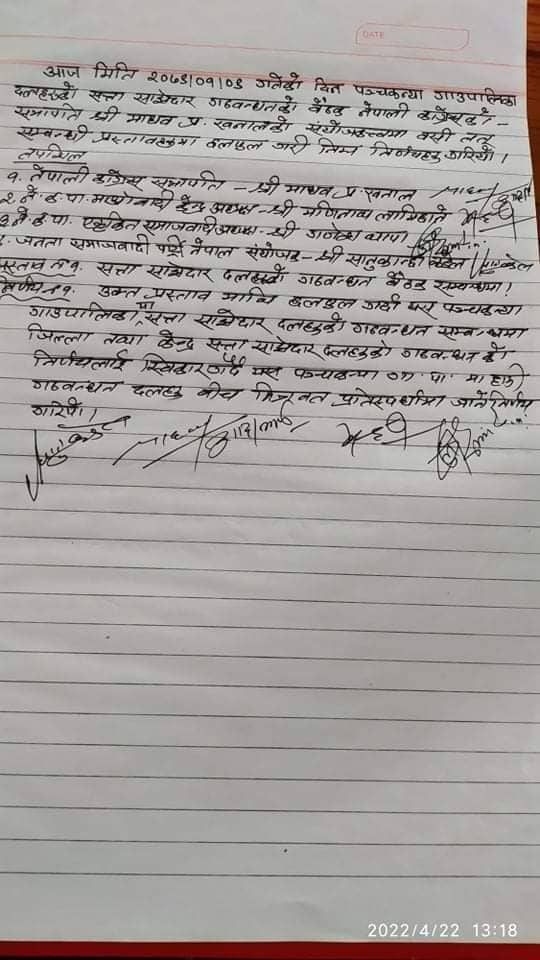 DATE
आज मिति २०७९/०१/०९ गतेका दिन पञ्चकन्या गाउपालिका
दलहरुको सत्ता साझेदार गठबन्धनको बैठक नेपाली कांग्रेसका
सभापति श्री माधव प्र. खनालको संयोजकत्वमा बसी
सम्बन्धी प्रस्तावहरुमा छलफल गरी निम्न निर्णयहरु गरियो।
तपसिल
१. नेपाली कांग्रेस सभापति - श्री माधव प्र. खनाल
२. ने. क. पा. माओवादी केन्द्र अध्यक्ष - श्री मणिनाथ लामिछाने
३. ने. क. पा. एकिकृत समाजवादी अध्यक्ष - श्री गणेश थापा
जनता समाजवादी पार्टी नेपाल संयोजक - श्री
प्रस्ताव नं १. सत्ता साझेदार दलहरुको गठबन्धन बैठक सम्बन्धमा।
निर्णय नं १. उक्त प्रस्ताव माथि छलफल गर्दा यस पञ्चकन्या
गाउपालिकामा सत्ता साझेदार दलहरुको गठबन्धन सम्बन्धमा
जिल्ला तथा केन्द्र सत्ता साझेदार दलहरुको गठबन्धन को
निर्णयलाई स्विकार गर्दै यस पञ्चकन्या गा. पा. मा हामी
गठबन्धन दलहरु बीच मित्रवत प्रतिस्पर्धामा जाने निर्णय
गरियो।
2022/4/22 13:18